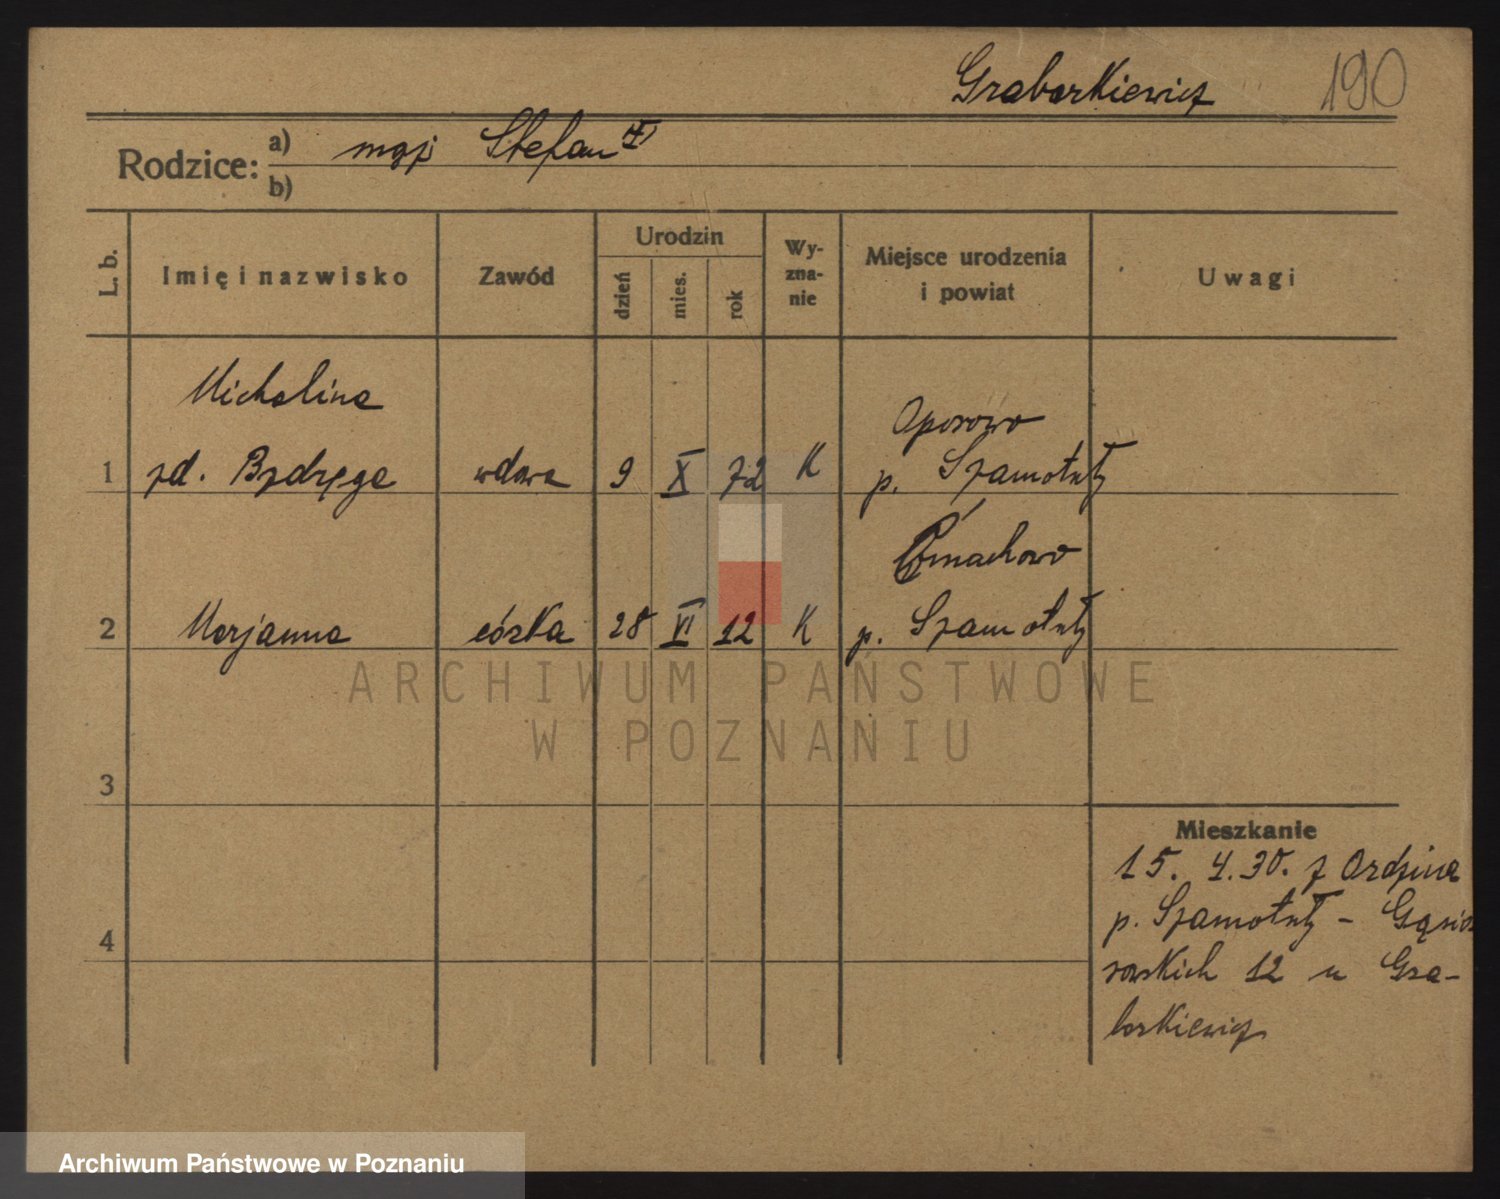 Grabarkiewicz 190
Rodzice: a) mąż Stefan
b)
L. b. Imię i nazwisko Zawód Urodzin dzień mies. rok Wy-zna-nie Miejsce urodzenia i powiat Uwagi
Michalina Oporowo
1 zd. wdowa 9 X 72 K p. Szamotuły
Ćmachowo
2 Marjanna córka 28 VI 12 K p. Szamotuły
3
4
Mieszkanie
15. 4. 30. z Ordzina
p. Szamotuły - Gąsio
rowskich 12 u Gra-
barkiewicz
ARCHIWUM PAŃSTWOWE
W POZNANIU
Archiwum Państwowe w Poznaniu